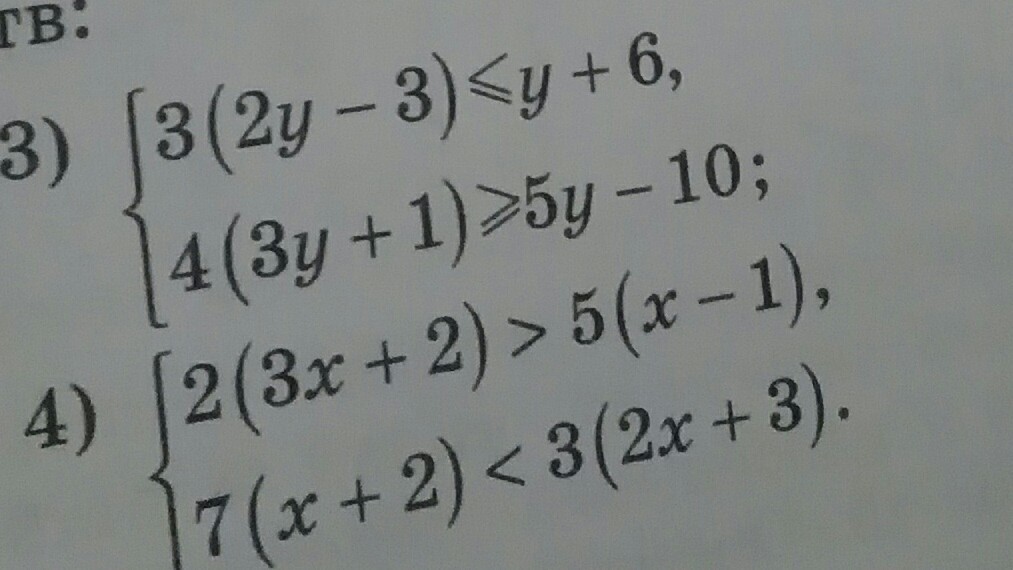 тв:
3) { 3(2y − 3) ⩽ y + 6,
4(3y + 1) ⩾ 5y − 10;
4) { 2(3x + 2) > 5(x − 1),
7(x + 2) < 3(2x + 3).